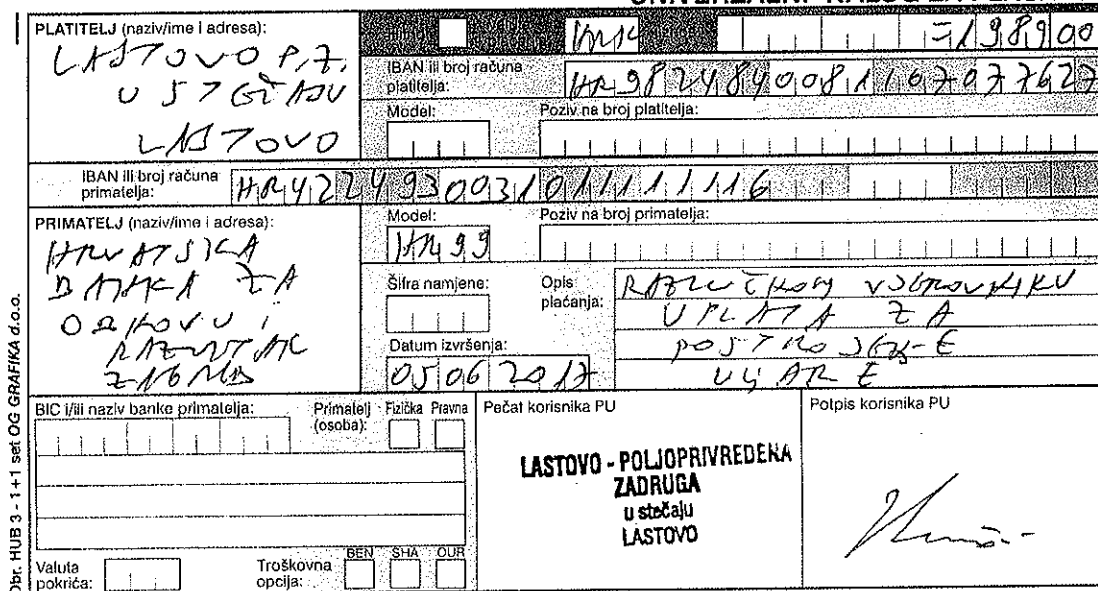 PLATITELJ (naziv/ime i adresa):
LASTOVO P.Z.
U STEČAJU
LASTOVO
HRK
=198900
IBAN ili broj računa
platitelja:
HR9824840081107077627
Model:
Poziv na broj platitelja:
IBAN ili broj računa
primatelja:
HR4224930031011111116
PRIMATELJ (naziv/ime i adresa):
HRVATSKA
BANKA ZA
OBNOVU I
RAZVITAK
ZAGREB
Model:
HR99
Poziv na broj primatelja:
Šifra namjene:
Opis
plaćanja:
RAZLUČNOM VJEROVNIKU
UPLATA ZA
POSTROJENJE
ULJARE
Datum izvršenja:
05062017
BIC i/ili naziv banke primatelja:
Primatelj
(osoba):
Fizička
Pravna
Pečat korisnika PU
LASTOVO - POLJOPRIVREDENA
ZADRUGA
u stečaju
LASTOVO
Potpis korisnika PU
Valuta
pokrića:
Troškovna
opcija:
BEN
SHA
OUR
Obr. HUB 3 - 1+1 set OG GRAFIKA d.o.o.